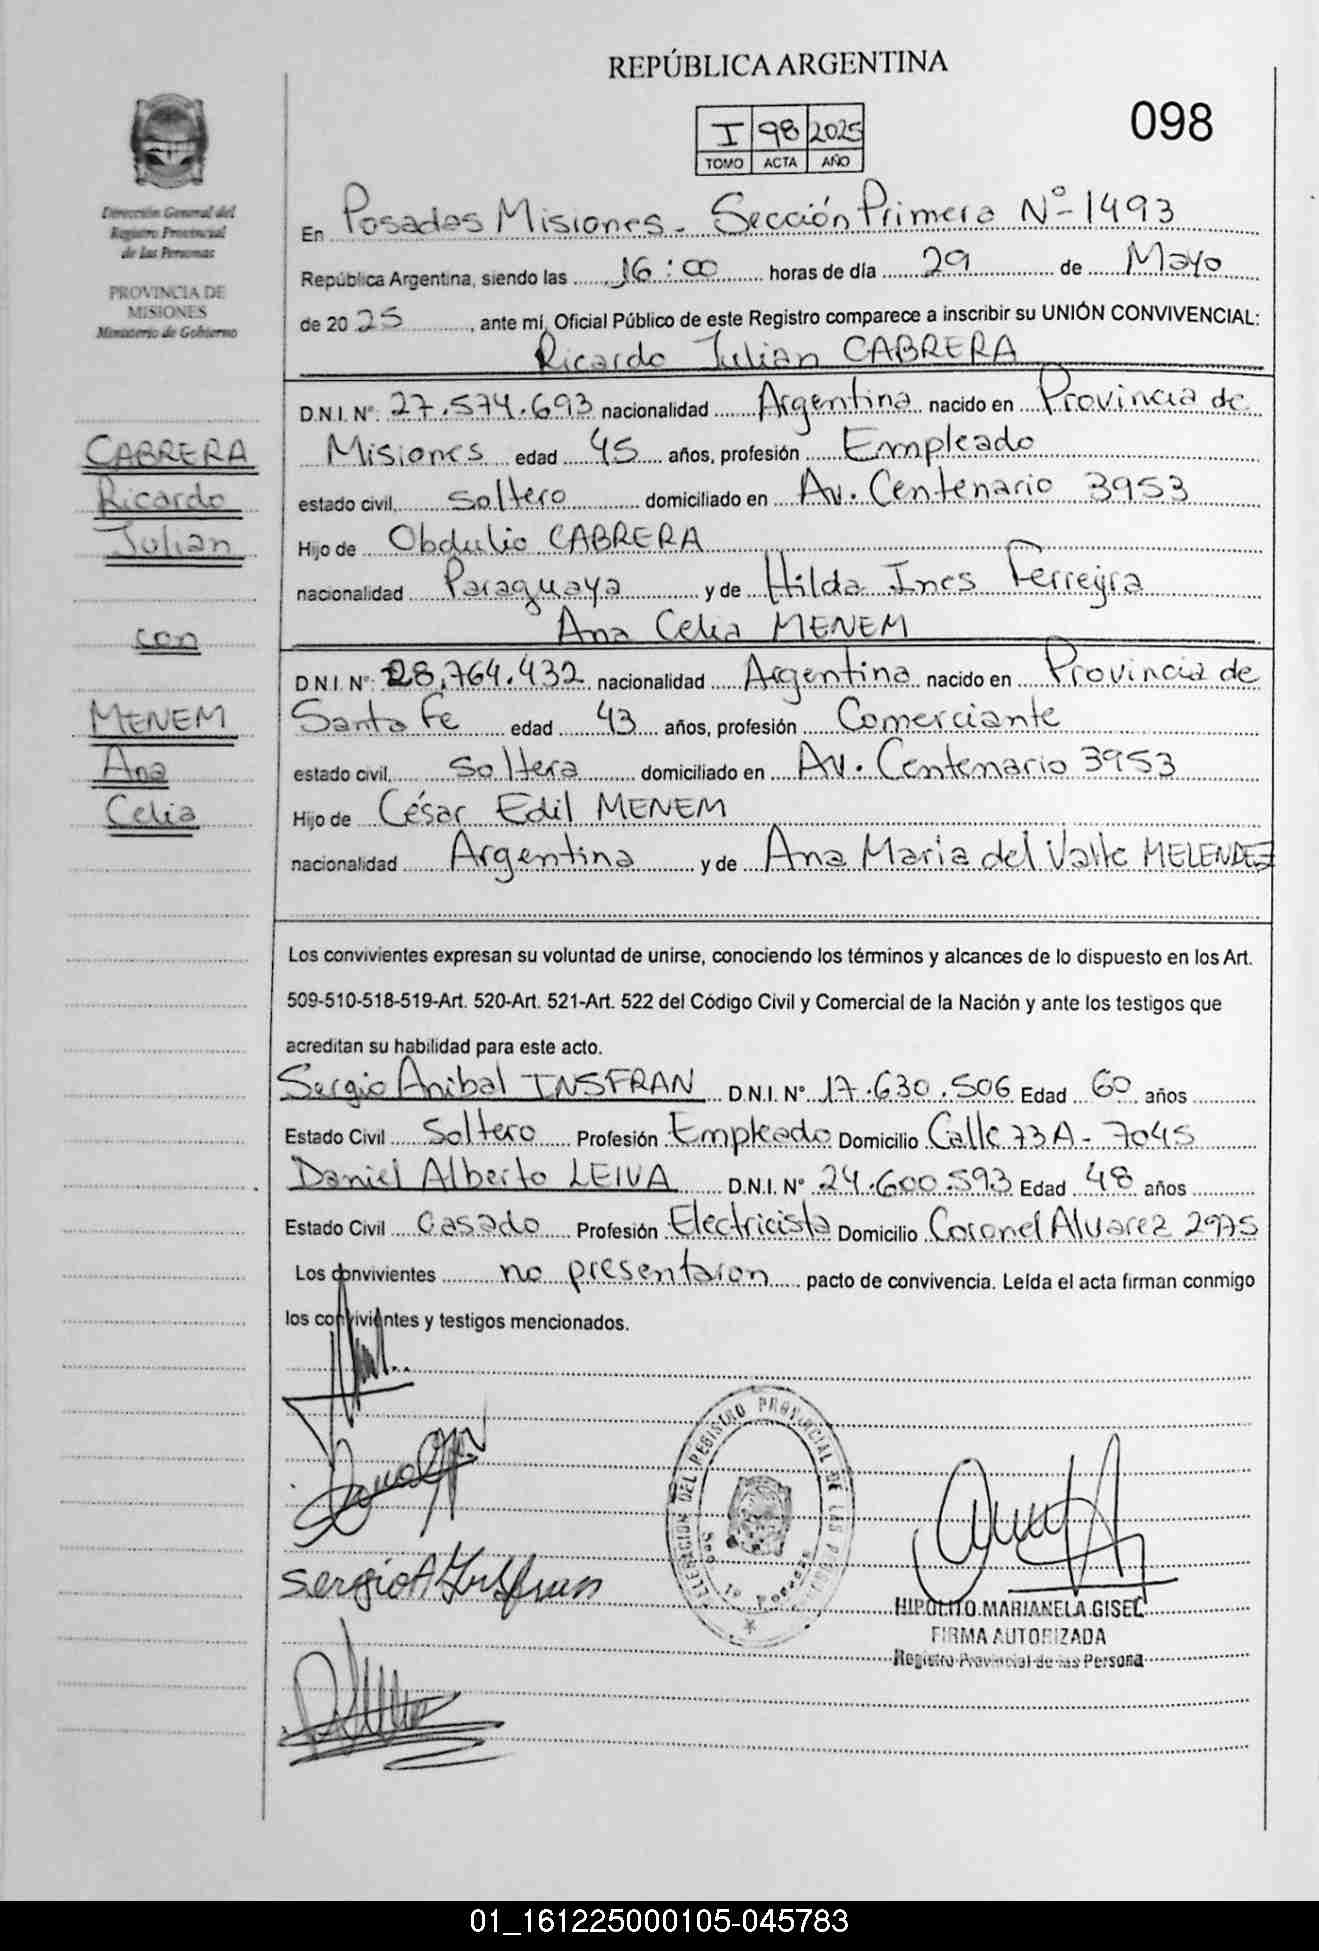 REPÚBLICA ARGENTINA
I 98 2025
TOMO ACTA AÑO
098
Dirección General del
Registro Provincial
de las Personas
PROVINCIA DE
MISIONES
Ministerio de Gobierno
En Posadas Misiones. Sección Primera Nº-1493
República Argentina, siendo las 16:00 horas de día 29 de Mayo
de 20 25, ante mí, Oficial Público de este Registro comparece a inscribir su UNIÓN CONVIVENCIAL:
Ricardo Julian CABRERA
D.N.I. Nº: 27.574.693 nacionalidad Argentina nacido en Provincia de
Misiones edad 45 años, profesión Empleado
estado civil, soltero domiciliado en Av. Centenario 3953
Hijo de Obdulio CABRERA
nacionalidad Paraguaya y de Hilda Ines Ferreyra
Ana Celia MENEM
D.N.I. Nº: 28.764.432 nacionalidad Argentina nacido en Provincia de
Santa Fe edad 43 años, profesión Comerciante
estado civil, Soltera domiciliado en Av. Centenario 3953
Hijo de César Edil MENEM
nacionalidad Argentina y de Ana Maria del Valle MELENDEZ
CABRERA
Ricardo
Julian
con
MENEM
Ana
Celia
Los convivientes expresan su voluntad de unirse, conociendo los términos y alcances de lo dispuesto en los Art.
509-510-518-519-Art. 520-Art. 521-Art. 522 del Código Civil y Comercial de la Nación y ante los testigos que
acreditan su habilidad para este acto.
Sergio Anibal INSFRAN D.N.I. Nº 17.630.506 Edad 60 años
Estado Civil Soltero Profesión Empleado Domicilio Calle 73A - 7045
Daniel Alberto LEIVA D.N.I. Nº 24.600.593 Edad 48 años
Estado Civil Casado Profesión Electricista Domicilio Coronel Alvarez 2975
Los convivientes no presentaron pacto de convivencia. Leída el acta firman conmigo
los convivientes y testigos mencionados.
Sergio A Insfran
DEL REGISTRO PROVINCIAL DE LAS
HIPOLITO MARIANELA GISEL
FIRMA AUTORIZADA
Registro Provincial de las Persona
01_161225000105-045783